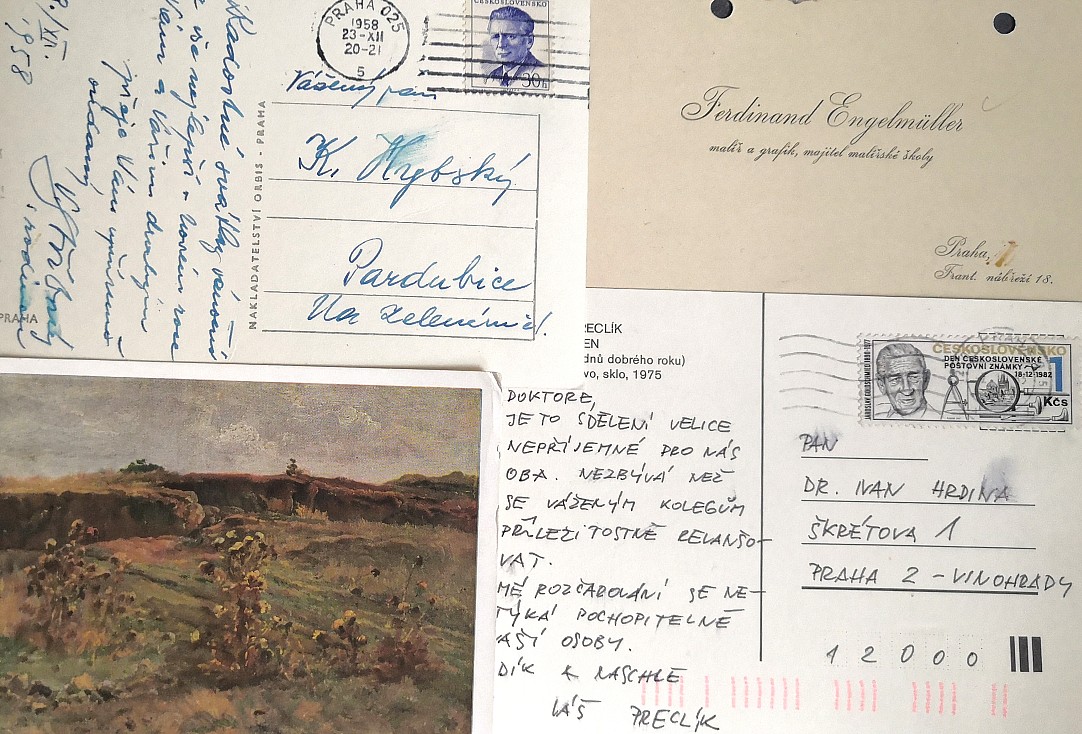 PRAHA 025
1958
23-XII
20-21
5
ČESKOSLOVENSKO
30h
Vážený pan
K. Hrybský
Pardubice
Na zeleném
NAKLADATELSTVÍ ORBIS - PRAHA
Radostné svátky vánoční
vše nejlepší v novém roce
Vám a Vašim drahým
přeje Vám upřímně
oddaný
s rodinou
XII. 1958
PRAHA
Ferdinand Engelmüller
malíř a grafik, majitel malířské školy
Praha,
Frant. nábřeží 18.
RECLÍK
EN
dnů dobrého roku)
vo, sklo, 1975
DOKTORE,
JE TO SDĚLENÍ VELICE
NEPŘÍJEMNÉ PRO NÁS
OBA. NEZBÝVÁ NEŽ
SE VÁŽENÝM KOLEGŮM
PŘÍLEŽITOSTNĚ REVANŠO-
VAT.
MÉ ROZČAROVÁNÍ SE NE-
TÝKÁ POCHOPITELNĚ
AŠÍ OSOBY.
DÍK A NASCHLE
VÁŠ PRECLÍK
ČESKOSLOVENSKO
DEN ČESKOSLOVENSKÉ
POŠTOVNÍ ZNÁMKY
18.12.1982
1
Kčs
PAN
DR. IVAN HRDINA
ŠKRÉTOVA 1
PRAHA 2 - VINOHRADY
12000